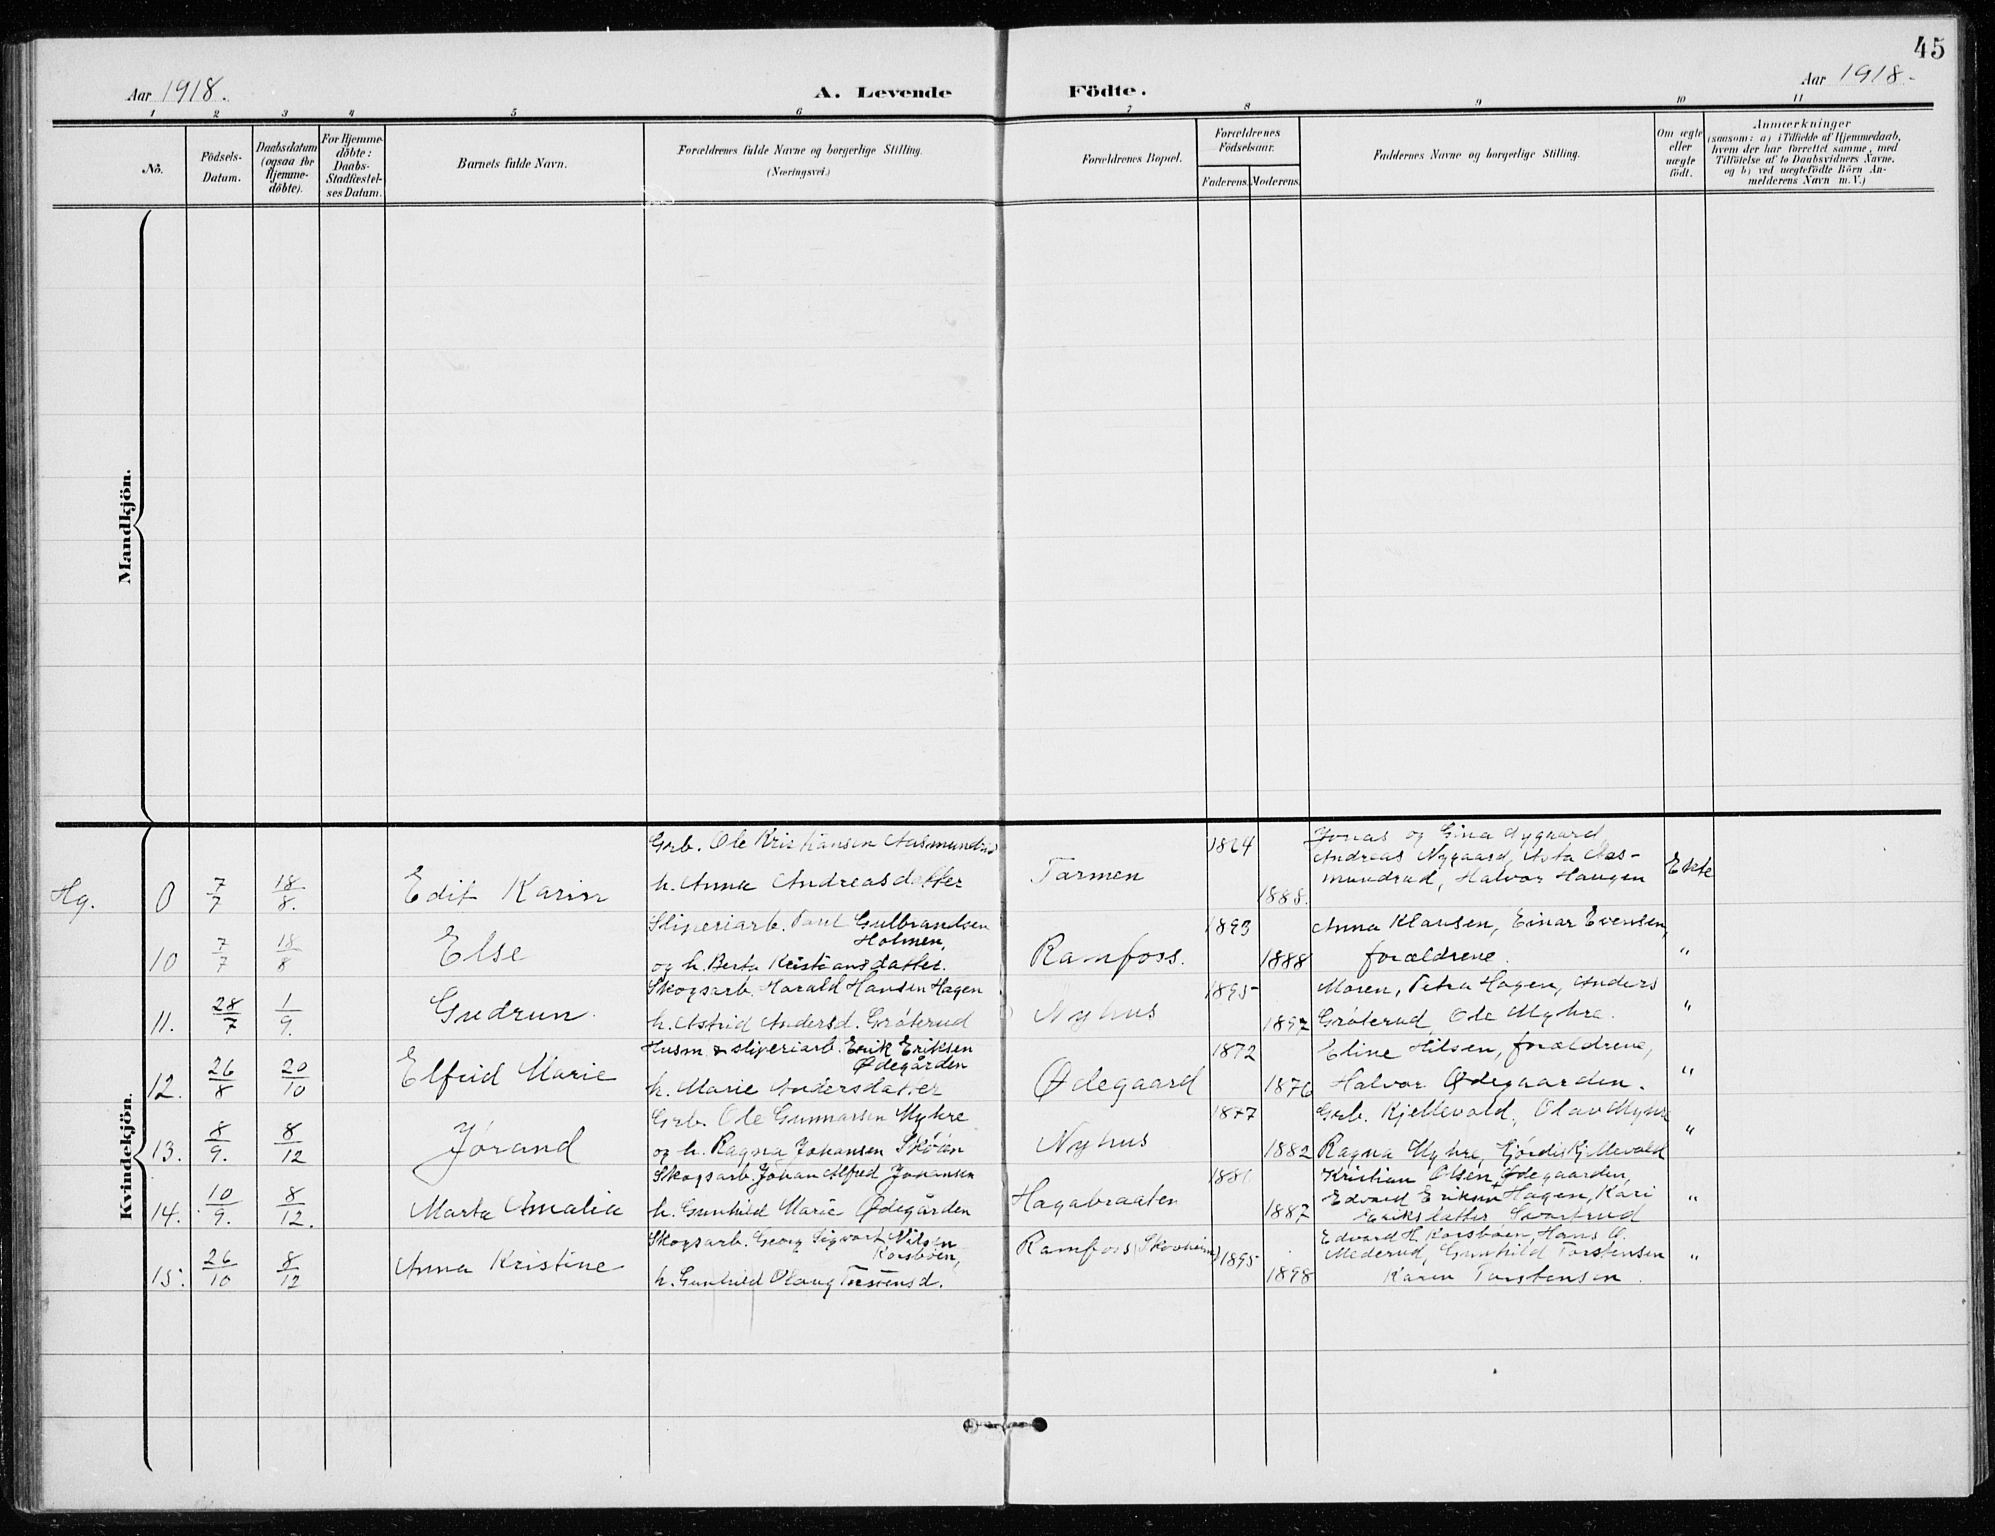 45
Aar 1918.
A. Levende Födte.
Aar 1918.
1 2 3 4 5 6 7 8 9 10 11
No.
Födsels-Datum.
Daabsdatum (ogsaa for Hjemme-döbte).
For Hjemme-döbte: Daabs-Stadfæstel-ses Datum.
Barnets fulde Navn.
Forældrenes fulde Navne og borgerlige Stilling.
(Næringsvei.)
Forældrenes Bopæl.
Forældrenes Födselsaar.
Faderens. Moderens.
Faddernes Navne og borgerlige Stilling.
Om ægte eller uægte födt.
Anmærkninger
(saasom: a) i Tilfælde af Hjemmedaab,
hvem der har forrettet samme, med
Tilföielse af to Daabsvidners Navne.
og b) ved uægtefödte Börn An-
melderens Navn m. V.)
Mandkjön.
Kvindekjön.
Grb. Ole Kristiansen Aasmundrud 1884 Jonas og Gina Nygaard
Andreas Nygaard, Asta Aas-
Hg. 7/7 18/8. Edit Karin h. Anna Andreasdatter Tormen 1888. mundrud, Halvor Haugen Ekte
Sliperiarb. Paul Gulbrandsen 1893 Anna Klausen, Einar Evensen,
Holmen,
10 7/7 18/8 Else og h. Berta Kristiansdatter. Ramfoss. 1888 forældrene. "
Skogsarb. Harald Hansen Hagen 1895 Maren, Petra Hagen, Anders
11. 28/7 1/9. Gudrun. h. Astrid Andersd. Gröterud Nyhus 1897 Gröterud, Ole Myhre. "
Husm. & sliperiarb. Erik Eriksen 1872 Eline Nilsen, forældrene,
Ødegården
12. 26/8 20/10 Elfrid Marie h. Marie Andersdatter Ødegaard 1876 Halvor Ødegaarden. "
Grb. Ole Gunnarsen Myhre 1877 Grb. Kjellevold, Olav Myhre
13. 8/9. 8/12 Jørand og h. Ragna Johansen Nyhus 1882 Ragna Myhre, Hjørdis Kjellevold "
Skogsarb. Johan Alfred Johansen 1881 Kristian Olsen Ødegaarden,
14. 10/9. 8/12. Marta Amalia h. Gunhild Marie Ødegården Hagabraaten 1887 Edvard Eriksen Hagen, Kari "
Eriksdatter
Skogsarb. Georg Sigvart Nilsen Edvard H. Korsböen, Hans
Korsböen,
15. 26/10 8/12 Anna Kristine h. Gunhild Olaug Torstensd. Ramfoss (Skovheim) 1895 1898 Mederud, Gunhild Torstensen "
Karen Torstensen.